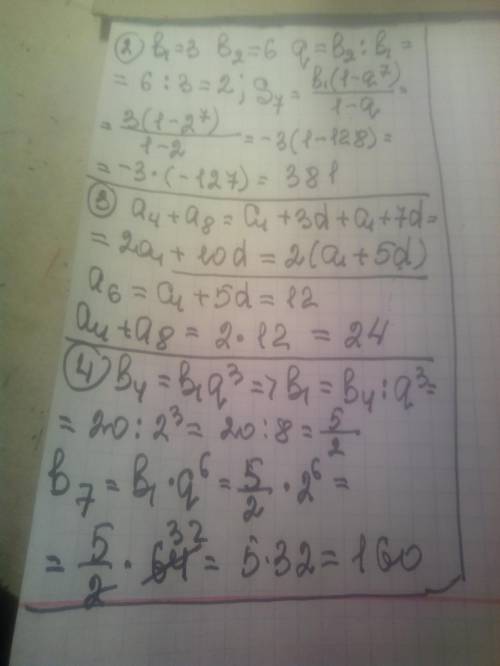 ② b₁=3 b₂=6 q=b₂:b₁=
=6:3=2; S₇=b₁(1-q⁷)/1-q=
=3(1-2⁷)/1-2=-3(1-128)=
=-3·(-127)=381
③ a₄+a₈=a₁+3d+a₁+7d=
=2a₁+10d=2(a₁+5d)
a₆=a₁+5d=12
a₄+a₈=2·12=24
④ b₄=b₁q³=>b₁=b₄:q³=
=20:2³=20:8=5/2
b₇=b₁·q⁶=5/2·2⁶=
=5/2·64 32=5·32=160